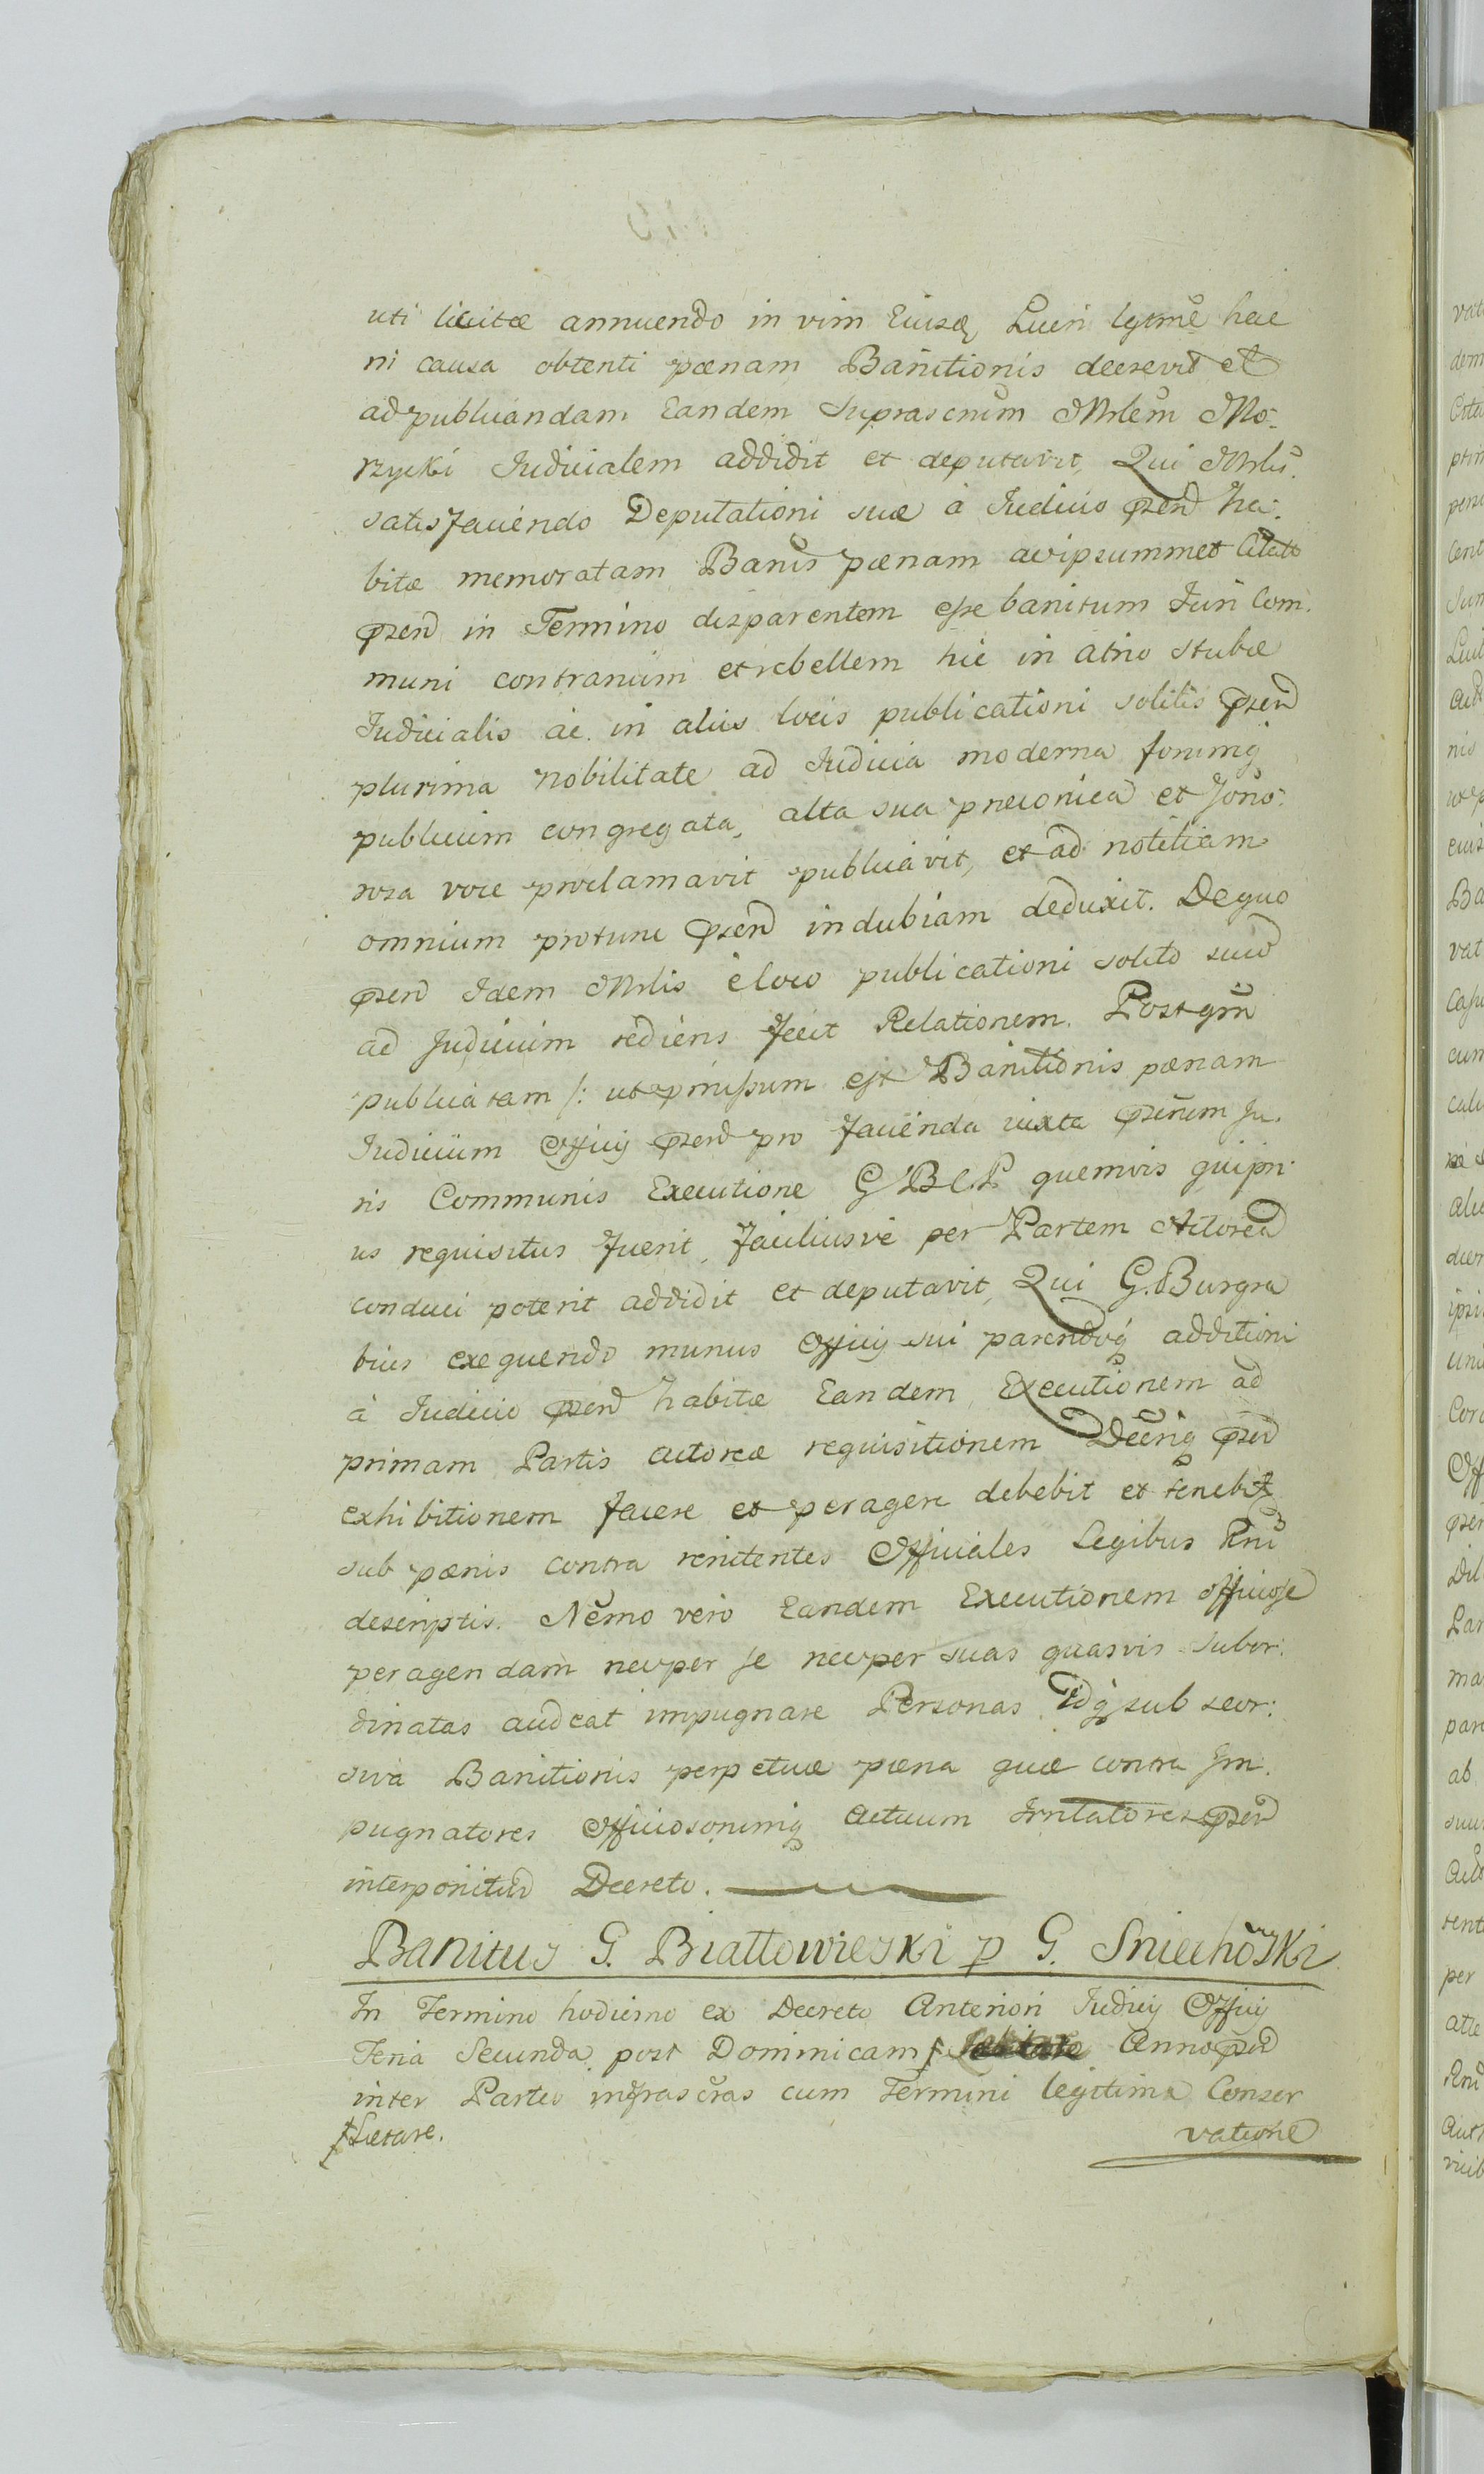 uti licitæ annuendo in vim Eiusdē Lucri lgtimē hac
ni causa obtenti pœnam Banitionis decrevit et
ad publicandam Eandem Suprascrūm Mrlēm Mo:
rzycki Iudicialem addidit et deputavit, Qui Mrlis
satisfaciendo Deputationi suæ à Iudicio pzend ha:
bitæ memoratam Banīs pœnam ac ipsummet Citatū
pzend in Termino disparentem esse banitum Juri Com:
muni contrarium et rebellem hic in atrio Stubæ
Iudicialis ac in aliis locis publicationi solitis pzend
plurima nobilitate ad Iudicia moderna forumq
publicum congregata, alta sua præconica et Sono:
rosa voce proclamavit publicavit, et ad notitiam
omnium protunc pzend indubiam deduxit. De quo
pzend Idem Mrlis è loco publicationi solito suo
ad Judicium rediens fecit Relationem. Post qm
publicatam /: ut pmissum est Banitionis pœnam
Iudicium Officij pzend pro facienda iuxta pzenem Ju:
ris Communis Executione G B C P quemvis qui pri:
us requisitus fuerit, faciliusve per Partem Actorea
conduci poterit addidit et deputavit, Qui G. Burgra
bius exequendo munus Officij sui parendoq additioni
à Iudicio pzend habitæ Eandem Executionem ad
primam Partis actoreæ requisitionem Decriq pzend
exhibitionem facere et peragere debebit et tenebit
sub pœnis contra renitentes Officiales Legibus Rni
descriptis. Nemo vero Eandem Executionem officiose
peragendam nec per se nec per suas quasvis Subor:
dinatas audeat impugnare Personas Idq sub seor:
siva Banitionis perpetuæ pœna quæ contra Im:
pugnatores Officiosorumq Actuum Irritatores pzend
interponitur Decreto.
Banitus G. Białłowieski p G. Sniechorski
In Termino hodierno ex Decreto Anteriori Iudicij Officij
Feria Secunda post Dominicam ƒ Anno pzd
inter Partes infrascras cum Termini legitima Conser
ƒ Lætare.
vatione